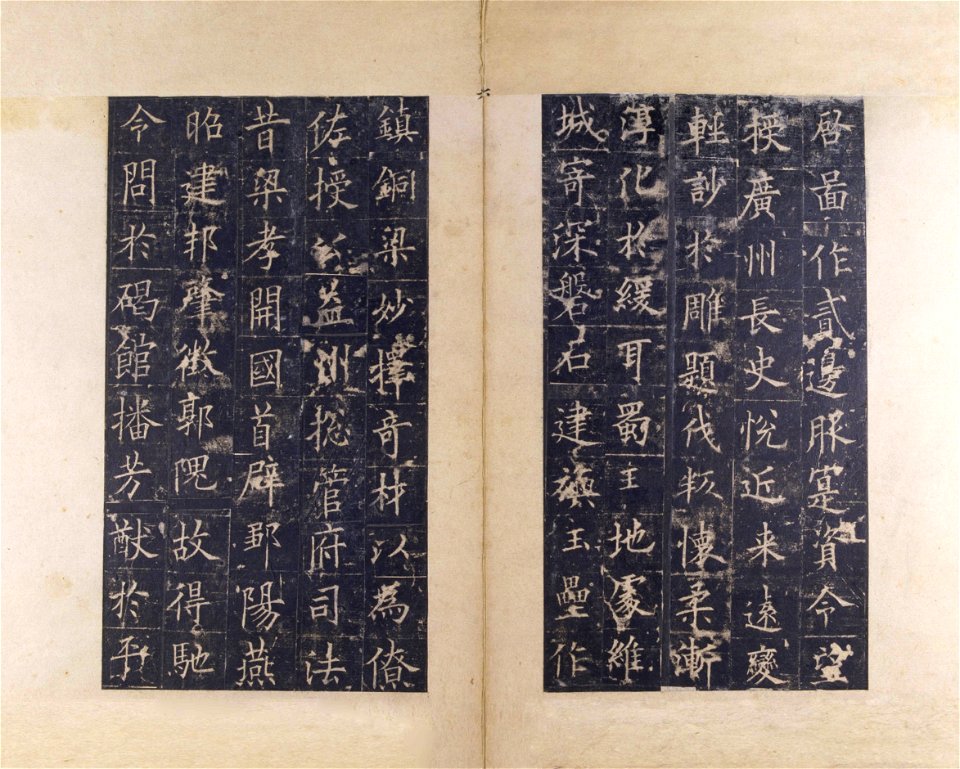 啓啚作貳邊服寔資令望
授廣州長史悅近来遠變
輕訬於雕題伐叛懷柔漸
淳化於緩耳蜀王地處維
城寄深磐石建旟玉壘作
鎮銅梁妙擇奇材以為僚
佐授公益州揔管府司法
昔梁孝開國首辟鄒陽燕
昭建邦肇徵郭隗故得馳
令問於碣館播芳猷於平